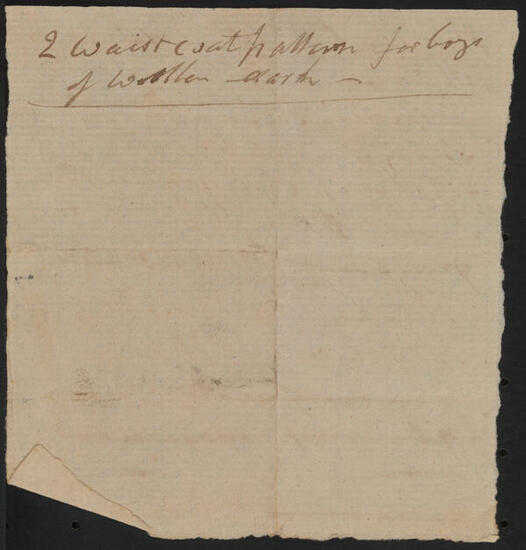 2 Waistcoat pattern for boys
of Woollen dark —